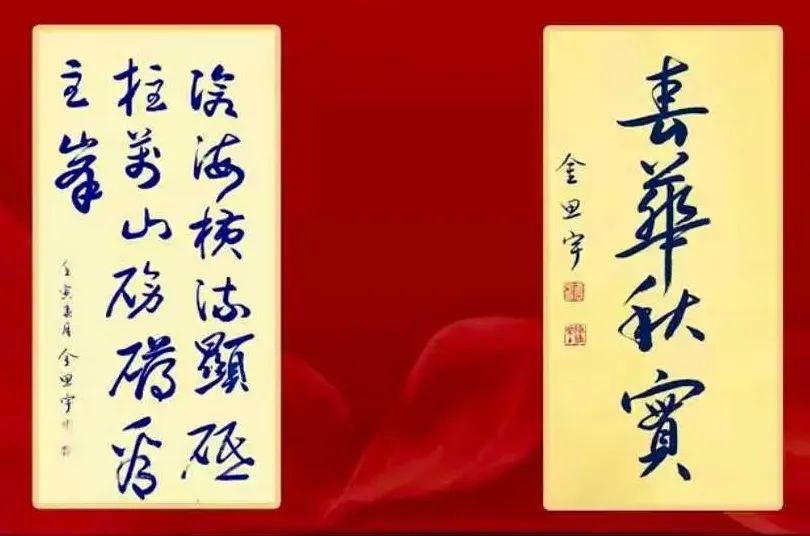 滄海横流顯砥
柱萬山磅礴看
主峯
壬寅春月 金思宇
春華秋實
金思宇